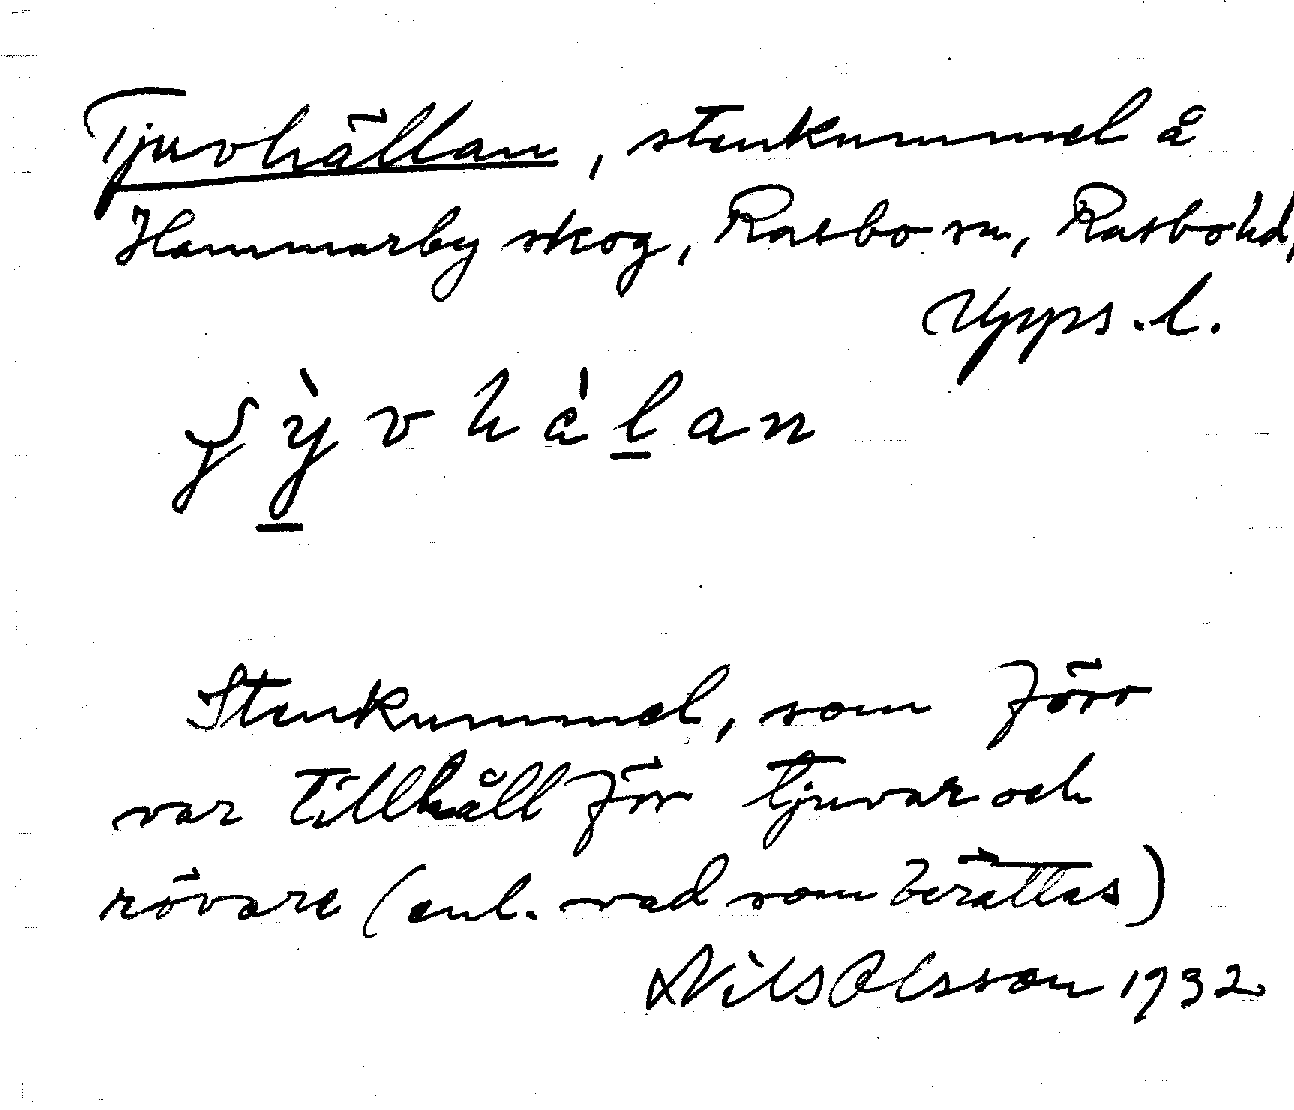 Tjuvhällan, stenkummel å
Hammarby skog, Rasbo sn, Rasbo hd,
Upps. l.
Stenkummel, som förr
var tillhåll för tjuvar och
rövare (enl. vad som berättas)
Nils Olsson 1932